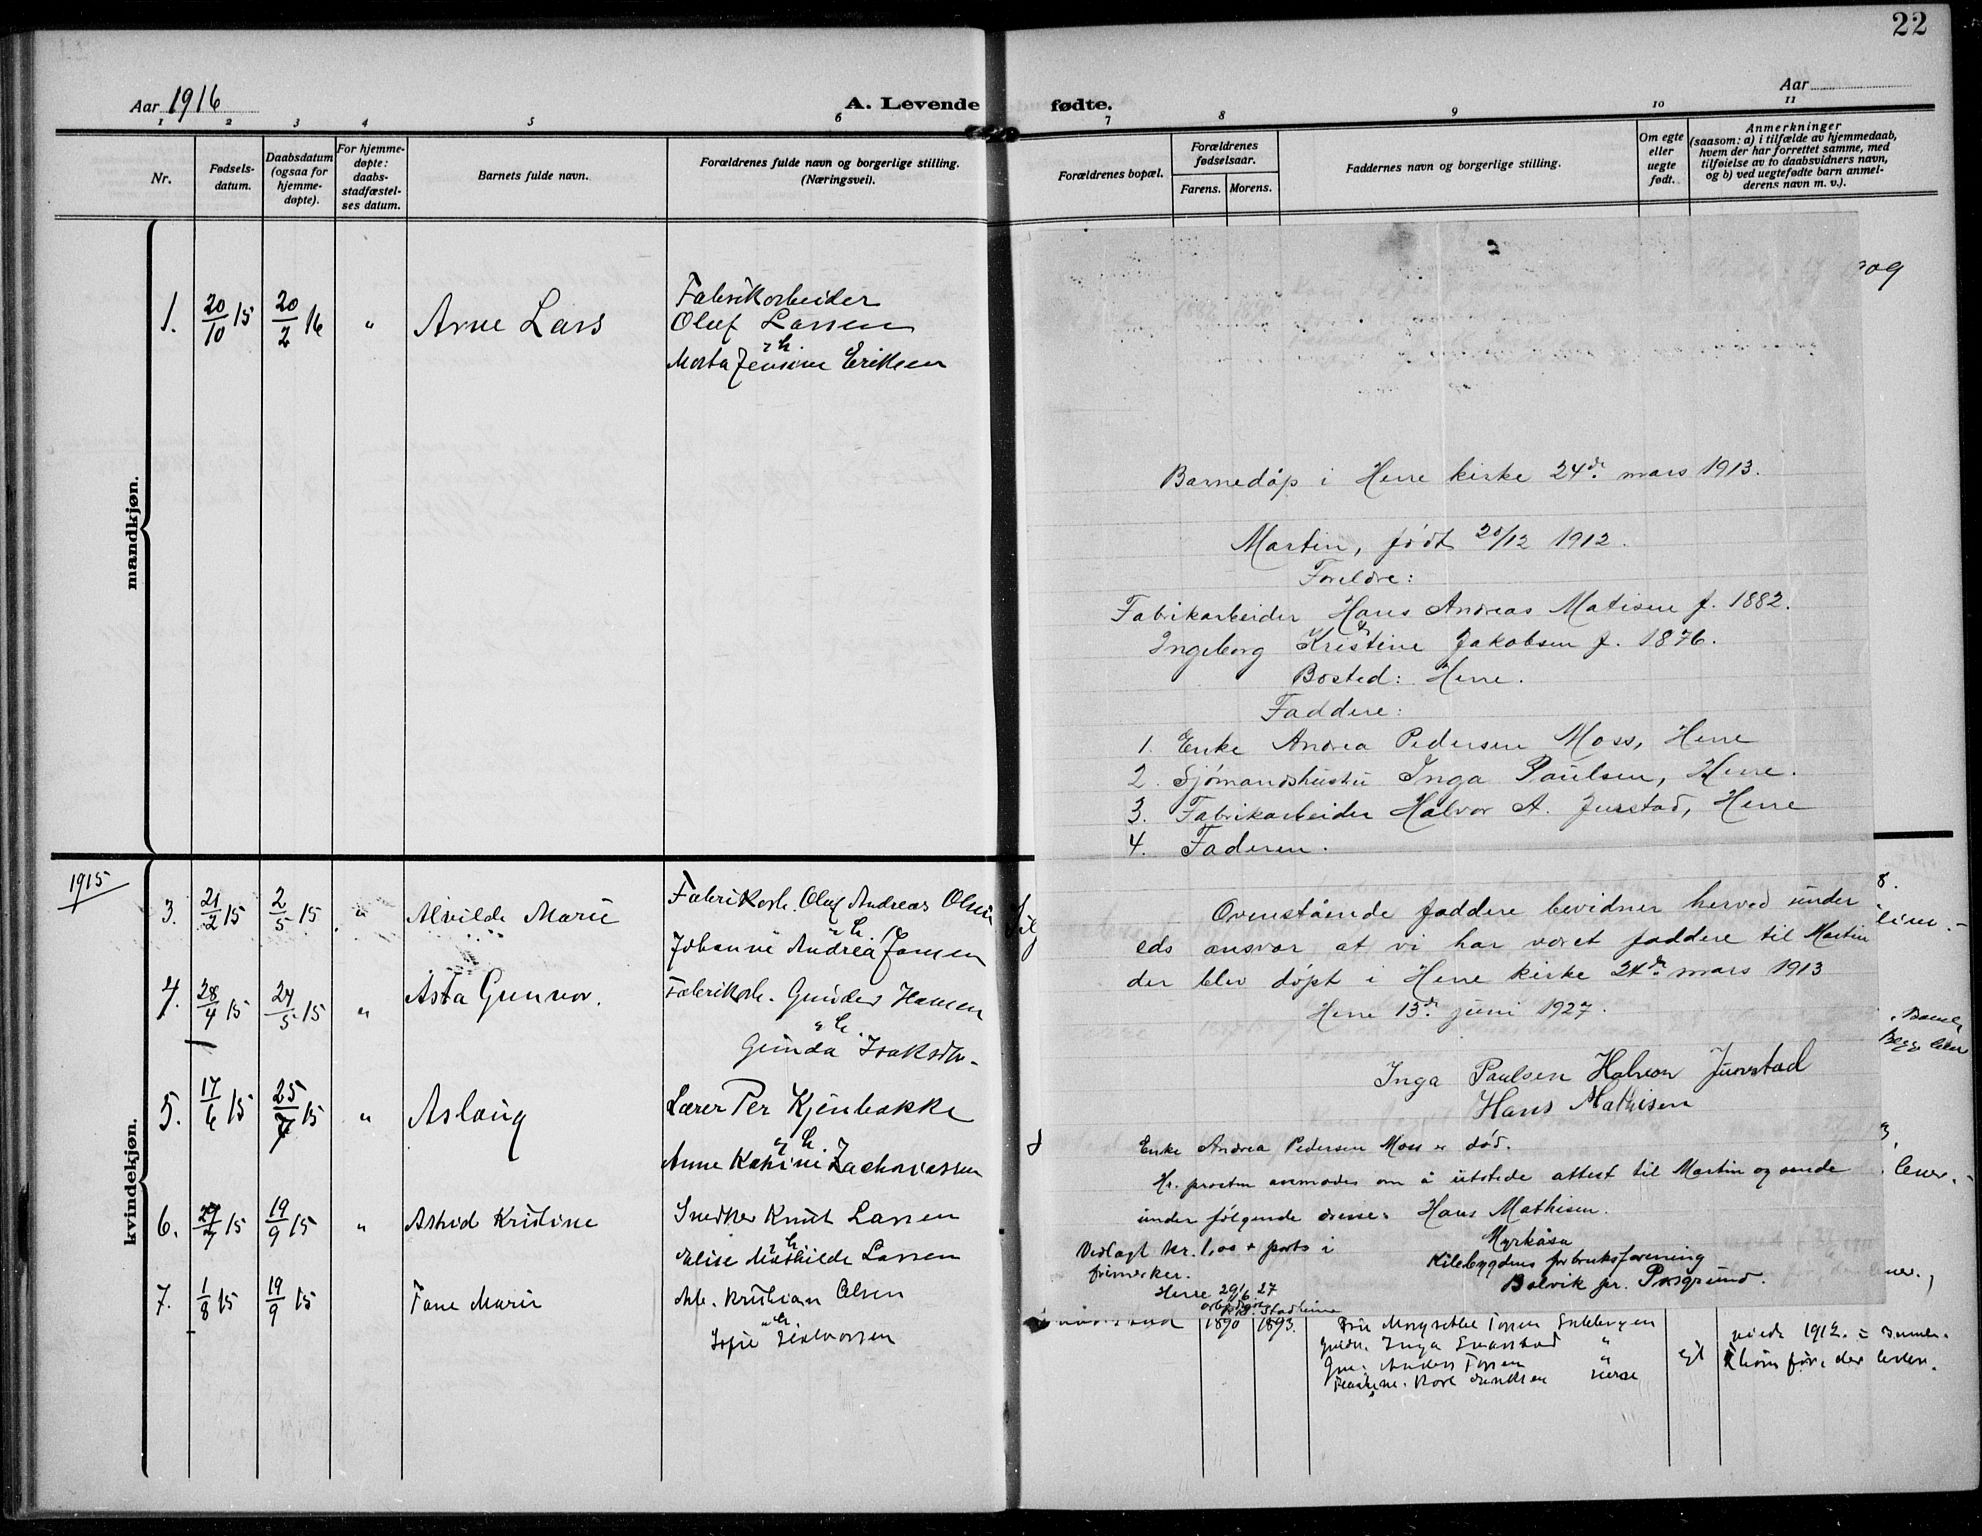 22
Aar 1916
A. Levende fødte.
Aar
1 2 3 4 5 6 7 8 9 10 11
Nr.
Fødsels-
datum.
Daabsdatum
(ogsaa for
hjemme-
døpte).
For hjemme-
døpte:
daabs-
stadfæstel-
ses datum.
Barnets fulde navn.
Forældrenes fulde navn og borgerlige stilling.
(Næringsvei).
Forældrenes bopæl.
Forældrenes
fødselsaar.
Farens. Morens.
Faddernes navn og borgerlige stilling.
Om egte
eller
uegte
født.
Anmerkninger
(saasom: a) i tilfælde av hjemmedaab,
hvem der har forrettet samme, med
tilføielse av to daabsvidners navn,
og b) ved uegtefødte barn anmel-
derens navn m. v.).
mandkjøn.
1. 20/10 15 20/2 16 " Arne Lars
Fabrikarbeider
Oluf Larsen
o h.
Marta Jensine Eriksen
1915
kvindekjøn.
3. 21/2 15 2/5 15 " Alvilde Marie
Fabrikarb. Oluf Andreas Olsen
o h.
Johanne Andrea Jansen
4. 28/4 15 24/5 15 " Asta Gunvor.
Fabrikarb. Gunder Hansen
o h.
Gunda Isaksdtr.
5. 17/6 15 25/7 15 " Aslaug
Lærer Per Kjenbakke
o h.
Anne Katrine Zachariassen
6. 29/7 15 19/9 15 " Astrid Kristine
Snedker Knut Larsen
o h
Elise Mathilde Larsen
7. 1/8 15 19/9 15 Marie
Arb. Kristian Olsen
o h.
Sofie Halvorsen
2
Barnedøp i Herre kirke 24de mars 1913.
Martin, født 20/12 1912.
Foreldre:
Fabrikarbeider Hans Andreas Matisen f. 1882.
&
Ingeborg Kristine Jakobsen f. 1876.
Bosted: Herre.
Faddere:
1. Enke Andrea Pedersen Moss, Herre
2. Sjømandshustru Inga Paulsen, Herre.
3. Fabrikarbeider Halvor A. Jurstad, Herre
4. Faderen.
Ovenstående faddere bevidner herved under
eds ansvar at vi har været faddere til Martin
der blev døpt i Herre kirke 24de mars 1913
Herre 13de juni 1927.
Inga Paulsen Halvor Jurstad
Hans Mathisen
Enke Andrea Pedersen Moss er død.
Hr. prosten anmodes om å utstede attest til Martin og sende
under følgende adresse: Hans Mathisen.
Myrkåsa
Kilebygdens forbruksforening
Balvik pr. Porsgrund.
Vedlagt kr. 1,00 + porto i
frimerker.
Herre 29/6 27
1890 1893.
Inga
Anders
Herre
egt
1912.